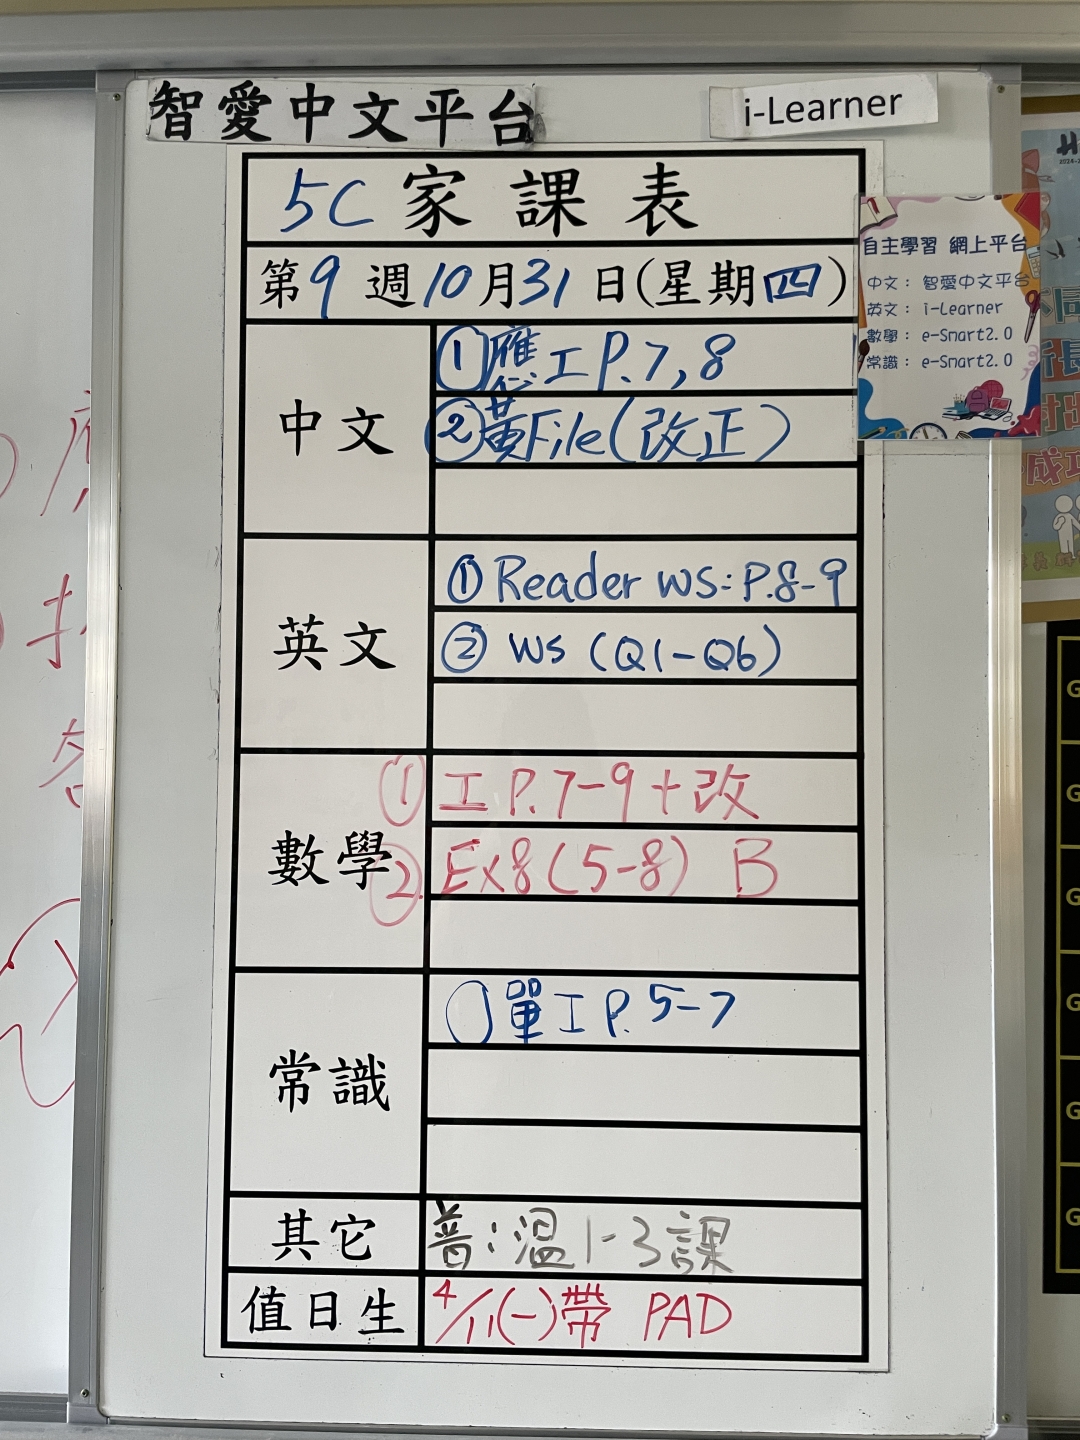 智愛中文平台
i-Learner
5C 家課表
第9週10月31日(星期四)
自主學習 網上平台
中文： 智愛中文平台
英文： i-Learner
數學： e-Smart2.0
常識： e-Smart2.0
中文
①應工 P.7,8
②黃File(改正)
英文
① Reader WS: P.8-9
② WS (Q1-Q6)
數學
① 工 P.7-9+改
②. Ex8(5-8) B
常識
單工 P.5-7
其它
普：溫1-3課
值日生
4/11(一)帶 PAD